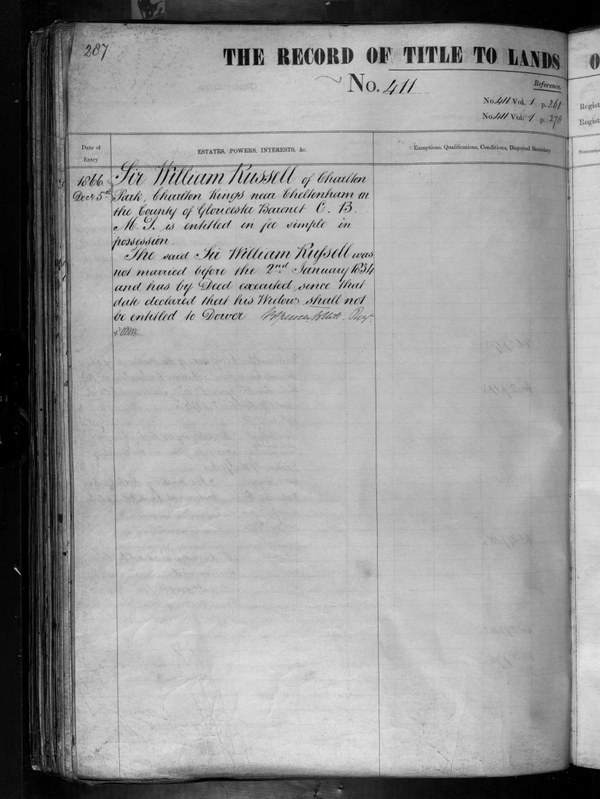 287
THE RECORD OF TITLE TO LANDS
No. 411
Reference.
No. 411 Vol. 1 p. 261
No. 411 Vol. 1 p. 279
Date of
Entry
ESTATES, POWERS, INTERESTS, &c.
Exemptions, Qualifications, Conditions, Disputed Boundary
O
Regist
Regist
1866
Decr 5th
Sir William Russell of Charlton
Park, Charlton Kings near Cheltenham in
the County of Gloucester Baronet C. B.
M. P. is entitled in fee simple in
possession
The said Sir William Russell was
not married before the 2nd January 1834
and has by Deed executed, since that
date declared that his Widow shall not
be entitled to Dower